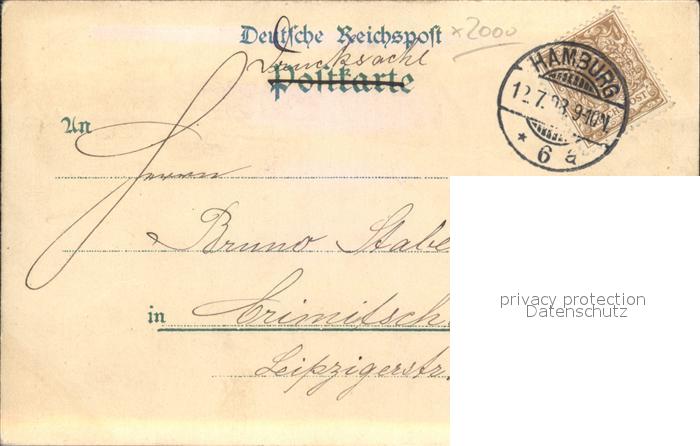 Deutsche Reichspost
x2000
Drucksache
Postkarte
HAMBURG
12.7.98.9-10N.
* 6 a
An
Herrn
Bruno Stabe
in Crimitsch
Leipzigerstr.
privacy protection
Datenschutz